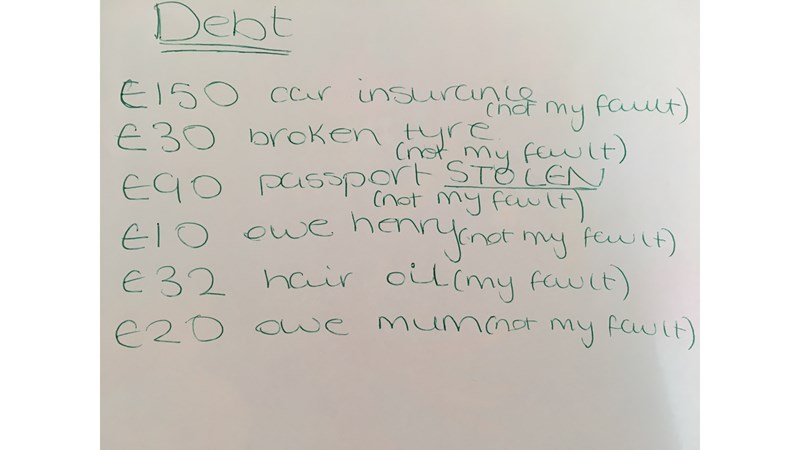 Debt
£150 car insurance
(not my fault)
£30 broken tyre
(not my fault)
£90 passport STOLEN
(not my fault)
£10 owe henry (not my fault)
£32 hair oil (my fault)
£20 owe mum (not my fault)